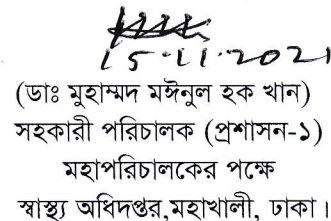 15.11.2021
(ডাঃ মুহাম্মদ মঈনুল হক খান)
সহকারী পরিচালক (প্রশাসন-১)
মহাপরিচালকের পক্ষে
স্বাস্থ্য অধিদপ্তর,মহাখালী, ঢাকা।